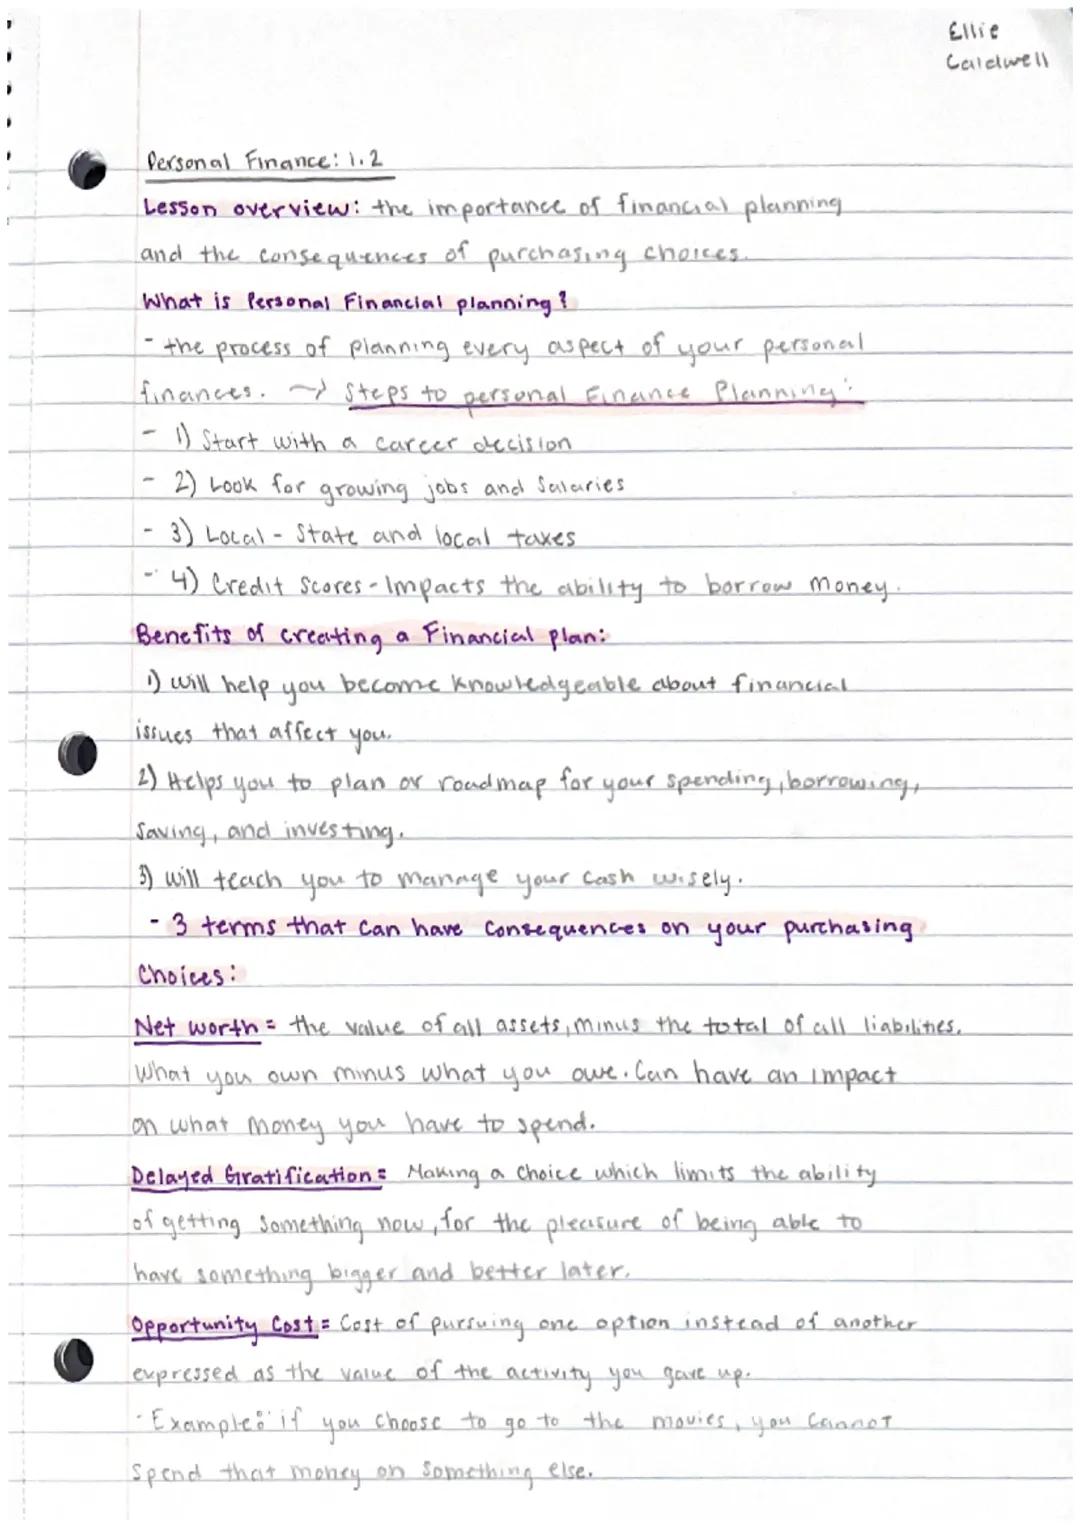 Ellie
Caldwell
Personal Finance: 1.2
Lesson overview: the importance of financial planning
and the consequences of purchasing choices.
What is Personal Financial planning?
- the process of planning every aspect of your personal
finances. ~> Steps to personal Finance Planning:
- 1) Start with a career decision
- 2) Look for growing jobs and Salaries
- 3) Local - State and local taxes
- 4) Credit Scores - Impacts the ability to borrow money.
Benefits of creating a Financial plan:
1) will help you become knowledgeable about financial
issues that affect you.
2) Helps you to plan or roadmap for your spending, borrowing,
Saving, and investing.
3) will teach you to manage your cash wisely.
- 3 terms that can have consequences on your purchasing
Choices:
Net worth = the value of all assets, minus the total of all liabilities.
What you own minus what you owe. Can have an impact
on what money you have to spend.
Delayed Gratification = Making a choice which limits the ability
of getting something now, for the pleasure of being able to
have something bigger and better later.
Opportunity Cost = Cost of pursuing one option instead of another
expressed as the value of the activity you gave up.
- Example: if you choose to go to the movies, you cannot
Spend that money on something else.